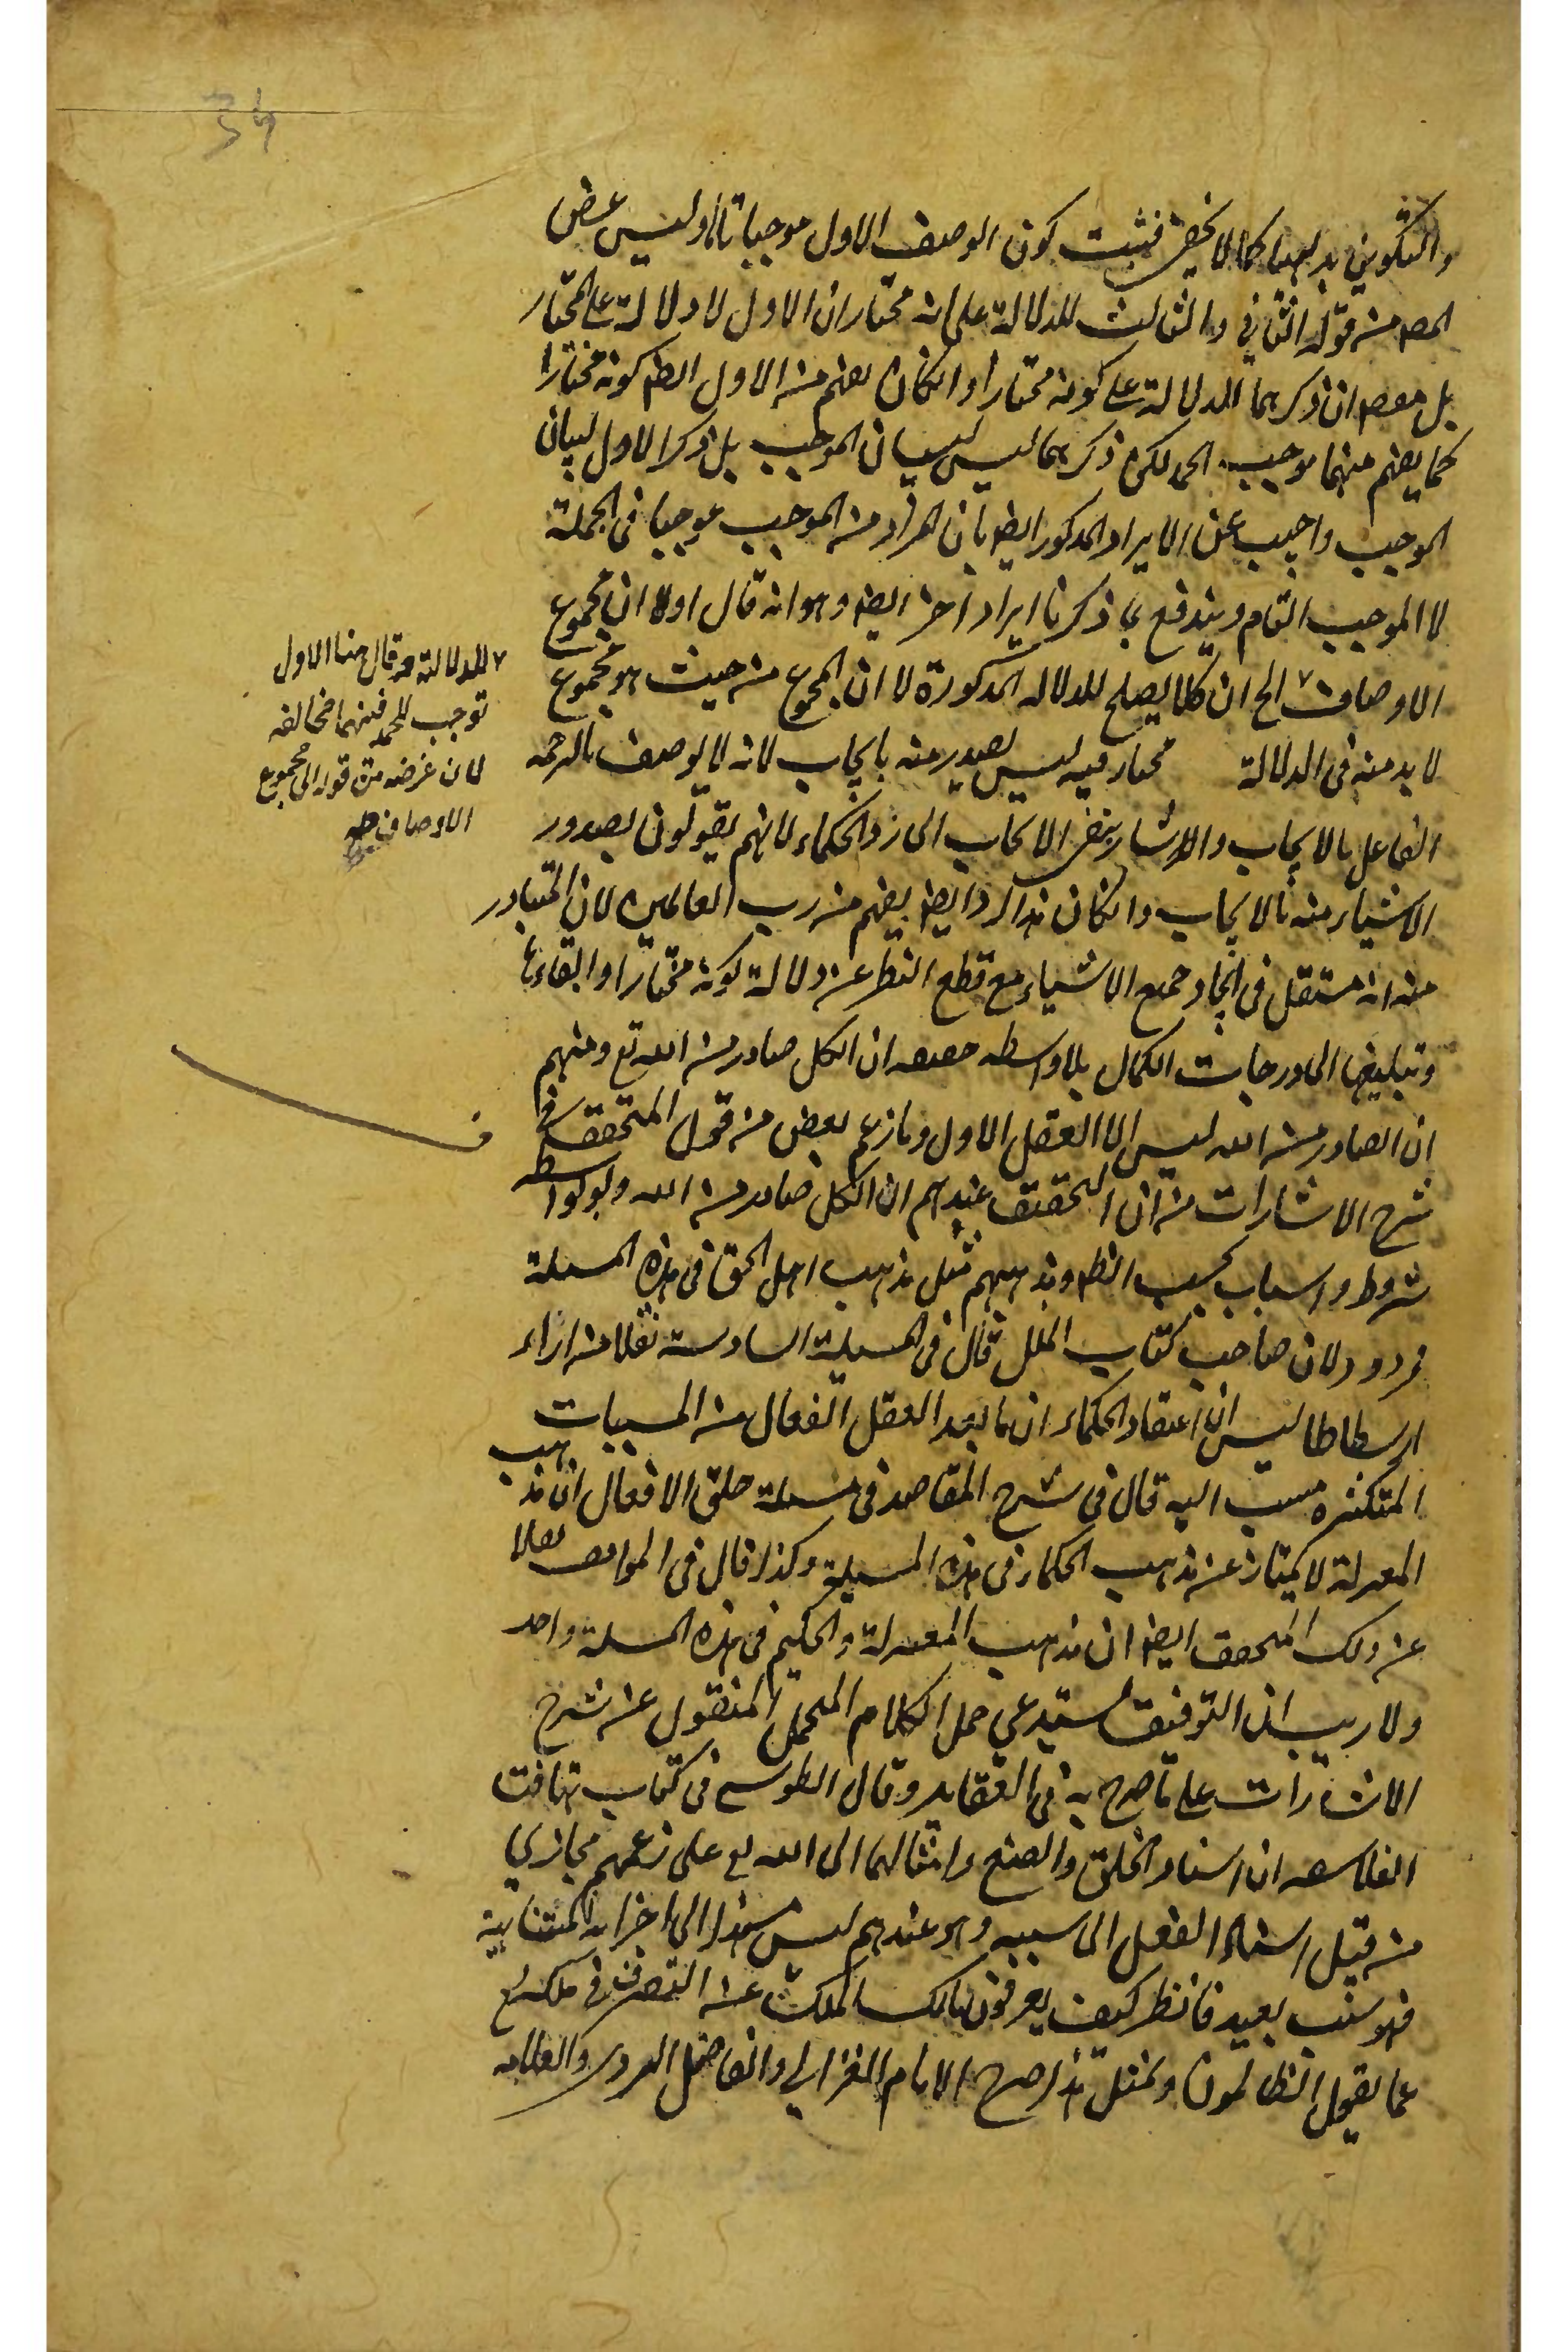 34
والتكوين بديهيا كما لا يخفى فثبت كون الوصف الاول موجبا تاما وليس غرض
المص من قوله الثاني والثالث للدلالة على انه مختار ان الاول لا دلالة على المختار
بل مقصه ان ذكرهما للدلالة على كونه مختارا وان كان يفهم من الاول ايضا كونه مختارا
كما يفهم منهما موجب الحمد لكن ذكرهما ليس لبيان الموجب بل ذكر الاول لبيان
الموجب واجيب عن الايراد المذكور ايضا بان المراد من الموجب موجبا في الجملة
لا الموجب التام ويندفع بما ذكرنا ايراد آخر ايضا وهو انه قال اولا ان مجموع
الاوصاف الخ ان كلا يصلح للدلاله المذكورة لا ان المجموع من حيث هو مجموع
لا بد منه في الدلالة مختار فيه ليس يصدر منه بايجاب لانه لا يوصف بالرحمه
الفاعل بالايجاب والاشار بنفى الايجاب الى رد الحكماء لانهم يقولون بصدور
الاشياء منه بالايجاب وان كان هذا الرد ايضا يفهم من رب العالمين لان المتبادر
منه انه مستقل في ايجاد جميع الاشياء مع قطع النظر عن دلالة كونه مختارا وابقاءها
وتبليغها الى درجات الكمال بلا واسطه حقيقه ان الكل صادر من الله تع ومنهم
ان الصادر من الله ليس الا العقل الاول وما زعم بعض من قول المتحقق في
شرح الاشارات من ان التحقيق عندهم ان الكل صادر من الله ولو بواسطه
شروط واسباب بحسب الظ ومذهبهم مثل مذهب اهل الحق في هذه المسئلة
مردود لان صاحب كتاب الملل قال في المسيلة السادسة نقلا من اراء
ارسطاطاليس ان اعتقاد الحكماء ان ما بعد العقل الفعال من المسببات
المتكثره منسب اليه قال في شرح المقاصد في مسئلة خلق الافعال ان مذهب
المعتزلة لا يمتاز عن مذهب الحكماء في هذه المسيلة وكذا قال في المواقف نقلا
عن ذلك المحقق ايضا ان مذهب المعتزلة والحكيم في هذه المسئلة واحد
ولا ريب ان التوفيق يستدعي حمل الكلام المجمل المنقول عن شرح
الاشارات على ما صرح به في العقايد وقال الطوسي في كتاب تهافت
الفلاسفه ان اسناد الخلق والصنع وامثالهما الى الله تع على زعمهم مجازي
من قبيل اسناد الفعل الى سببه وهو عندهم ليس مسندا الى اجزائه المتنابية
فهو سبب بعيد فانظر كيف يعرفون مالك الملك عن التصرف في ملكه تع
عما يقول الظالمون وبمثل هذا صرح الامام الغزالي والفاضل الهروي والعلامه
للدلالة وقال هنا الاول
توجب للحمد فبينهما مخالفه
لان غرضه من قوله الى مجموع
الاوصاف